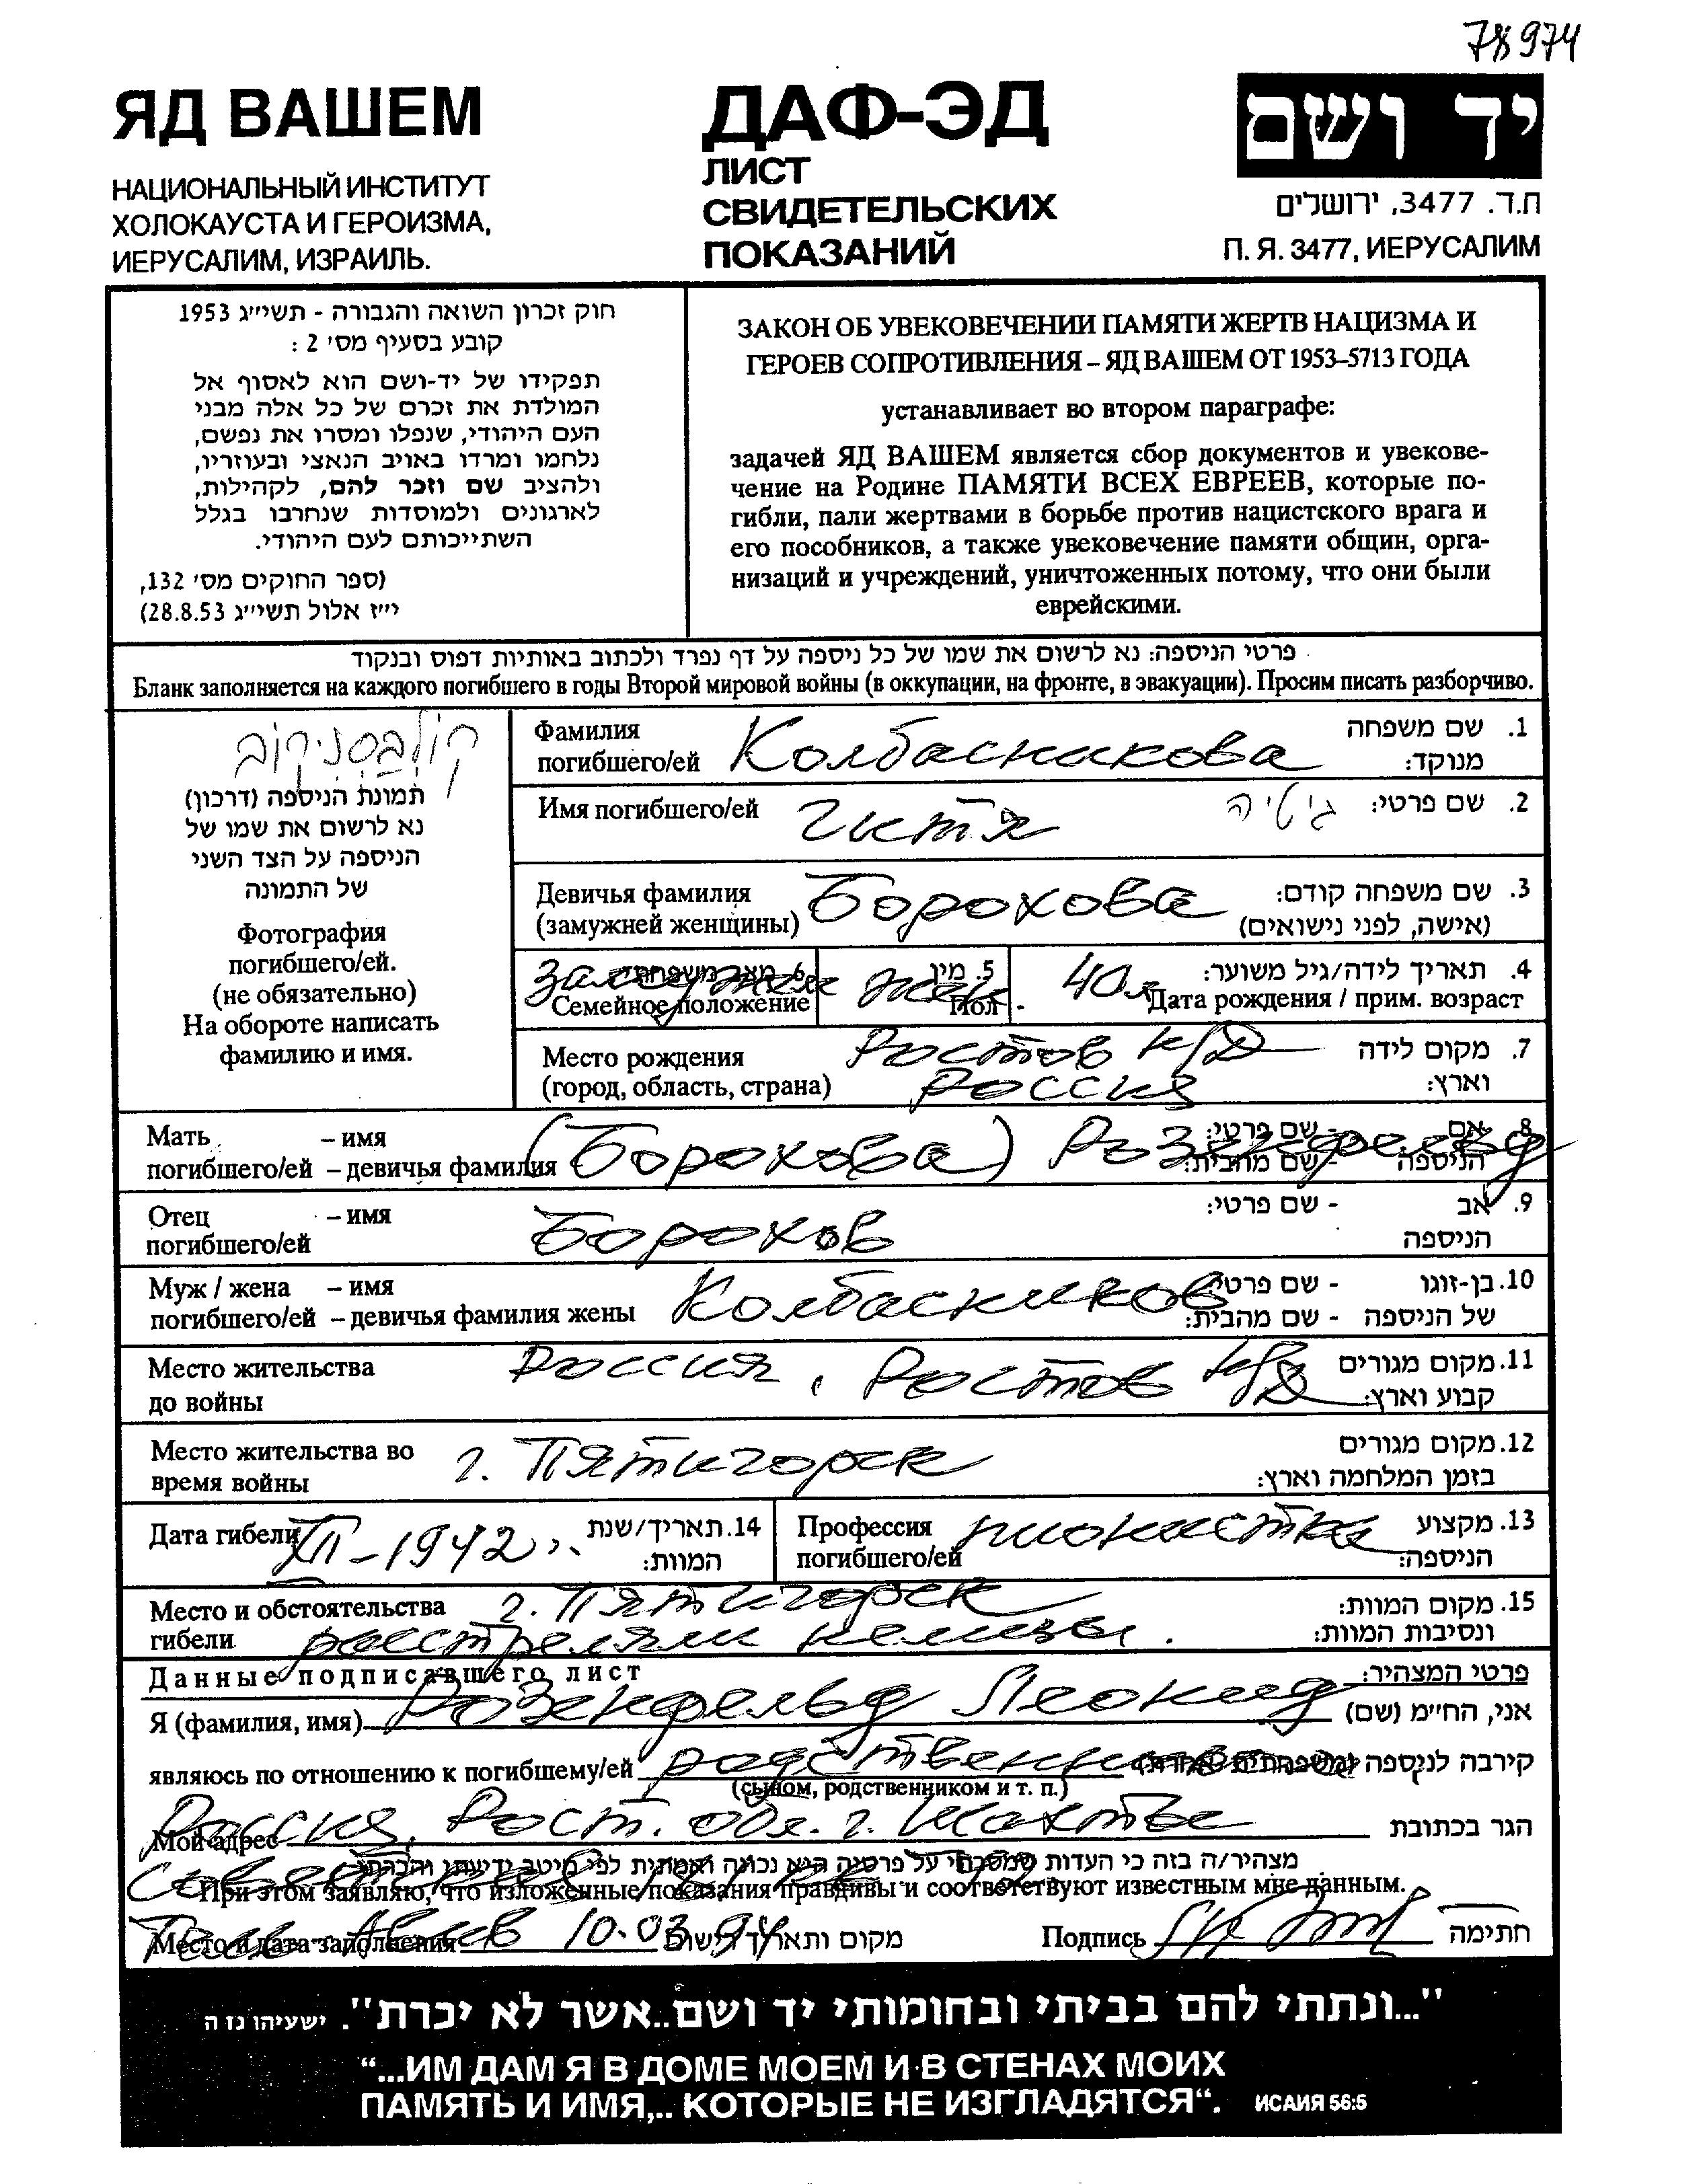 78974
ЯД ВАШЕМ
НАЦИОНАЛЬНЫЙ ИНСТИТУТ
ХОЛОКАУСТА И ГЕРОИЗМА,
ИЕРУСАЛИМ, ИЗРАИЛЬ.
ДАФ-ЭД
ЛИСТ
СВИДЕТЕЛЬСКИХ
ПОКАЗАНИЙ
יד ושם
ת.ד. 3477, ירושלים
П. Я. 3477, ИЕРУСАЛИМ
חוק זכרון השואה והגבורה - תשי״ג 1953
קובע בסעיף מס׳ 2 :
תפקידו של יד-ושם הוא לאסוף אל
המולדת את זכרם של כל אלה מבני
העם היהודי, שנפלו ומסרו את נפשם,
נלחמו ומרדו באויב הנאצי ובעוזריו,
ולהציב שם וזכר להם, לקהילות,
לארגונים ולמוסדות שנחרבו בגלל
השתייכותם לעם היהודי.
(ספר החוקים מס׳ 132,
י״ז אלול תשי״ג 28.8.53)
ЗАКОН ОБ УВЕКОВЕЧЕНИИ ПАМЯТИ ЖЕРТВ НАЦИЗМА И
ГЕРОЕВ СОПРОТИВЛЕНИЯ – ЯД ВАШЕМ ОТ 1953–5713 ГОДА
устанавливает во втором параграфе:
задачей ЯД ВАШЕМ является сбор документов и увекове-
чение на Родине ПАМЯТИ ВСЕХ ЕВРЕЕВ, которые по-
гибли, пали жертвами в борьбе против нацистского врага и
его пособников, а также увековечение памяти общин, орга-
низаций и учреждений, уничтоженных потому, что они были
еврейскими.
פרטי הניספה: נא לרשום את שמו של כל ניספה על דף נפרד ולכתוב באותיות דפוס ובנקוד
Бланк заполняется на каждого погибшего в годы Второй мировой войны (в оккупации, на фронте, в эвакуации). Просим писать разборчиво.
קולבסניקוב
תמונת הניספה (דרכון)
נא לרשום את שמו של
הניספה על הצד השני
של התמונה
Фотография
погибшего/ей.
(не обязательно)
На обороте написать
фамилию и имя.
Фамилия
погибшего/ей Колбасникова
1. שם משפחה
מנוקד:
Имя погибшего/ей Гитя
גיטיה
2. שם פרטי:
Девичья фамилия
(замужней женщины) Борохова
3. שם משפחה קודם:
(אישה, לפני נישואים)
6. מצב משפחתי:
Семейное положение замужем
5. מין
Пол жен.
4. תאריך לידה/גיל משוער:
40 л Дата рождения / прим. возраст
Место рождения Ростов н/Д
(город, область, страна) Россия
7. מקום לידה
וארץ:
Мать – имя
погибшего/ей – девичья фамилия (Борохова) Розенфельд
8. אם - שם פרטי:
הניספה - שם מהבית:
Отец – имя
погибшего/ей Борохов
9. אב - שם פרטי:
הניספה
Муж / жена – имя
погибшего/ей – девичья фамилия жены Колбасников
10. בן-זוגו - שם פרטי
של הניספה - שם מהבית:
Место жительства
до войны Россия, Ростов н/Д
11. מקום מגורים
קבוע וארץ:
Место жительства во
время войны г. Пятигорск
12. מקום מגורים
בזמן המלחמה וארץ:
Дата гибели XII – 1942
14. תאריך/שנת
המוות:
Профессия
погибшего/ей пионистка
13. מקצוע
הניספה:
Место и обстоятельства г. Пятигорск
гибели расстреляли немцы.
15. מקום המוות:
ונסיבות המוות:
Данные подписавшего лист
פרטי המצהיר:
Я (фамилия, имя) Розенфельд Леонид
אני, הח״מ (שם)
являюсь по отношению к погибшему/ей родственником
קירבה לניספה
(сыном, родственником и т. п.)
Мой адрес Россия, Рост. обл. г. Шахты
הגר בכתובת
מצהיר/ה בזה כי העדות שמסרתי על פרטיה היא נכונה ואמיתית לפי מיטב ידיעתי והכרתי
При этом заявляю, что изложенные показания правдивы и соответствуют известным мне данным.
Место и дата заполнения Тель-Авив 10.03.94
מקום ותאריך רישום
Подпись
חתימה
"...ונתתי להם בביתי ובחומותי יד ושם..אשר לא יכרת". ישעיהו נו ה
“...ИМ ДАМ Я В ДОМЕ МОЕМ И В СТЕНАХ МОИХ
ПАМЯТЬ И ИМЯ,.. КОТОРЫЕ НЕ ИЗГЛАДЯТСЯ“. ИСАИЯ 56:5